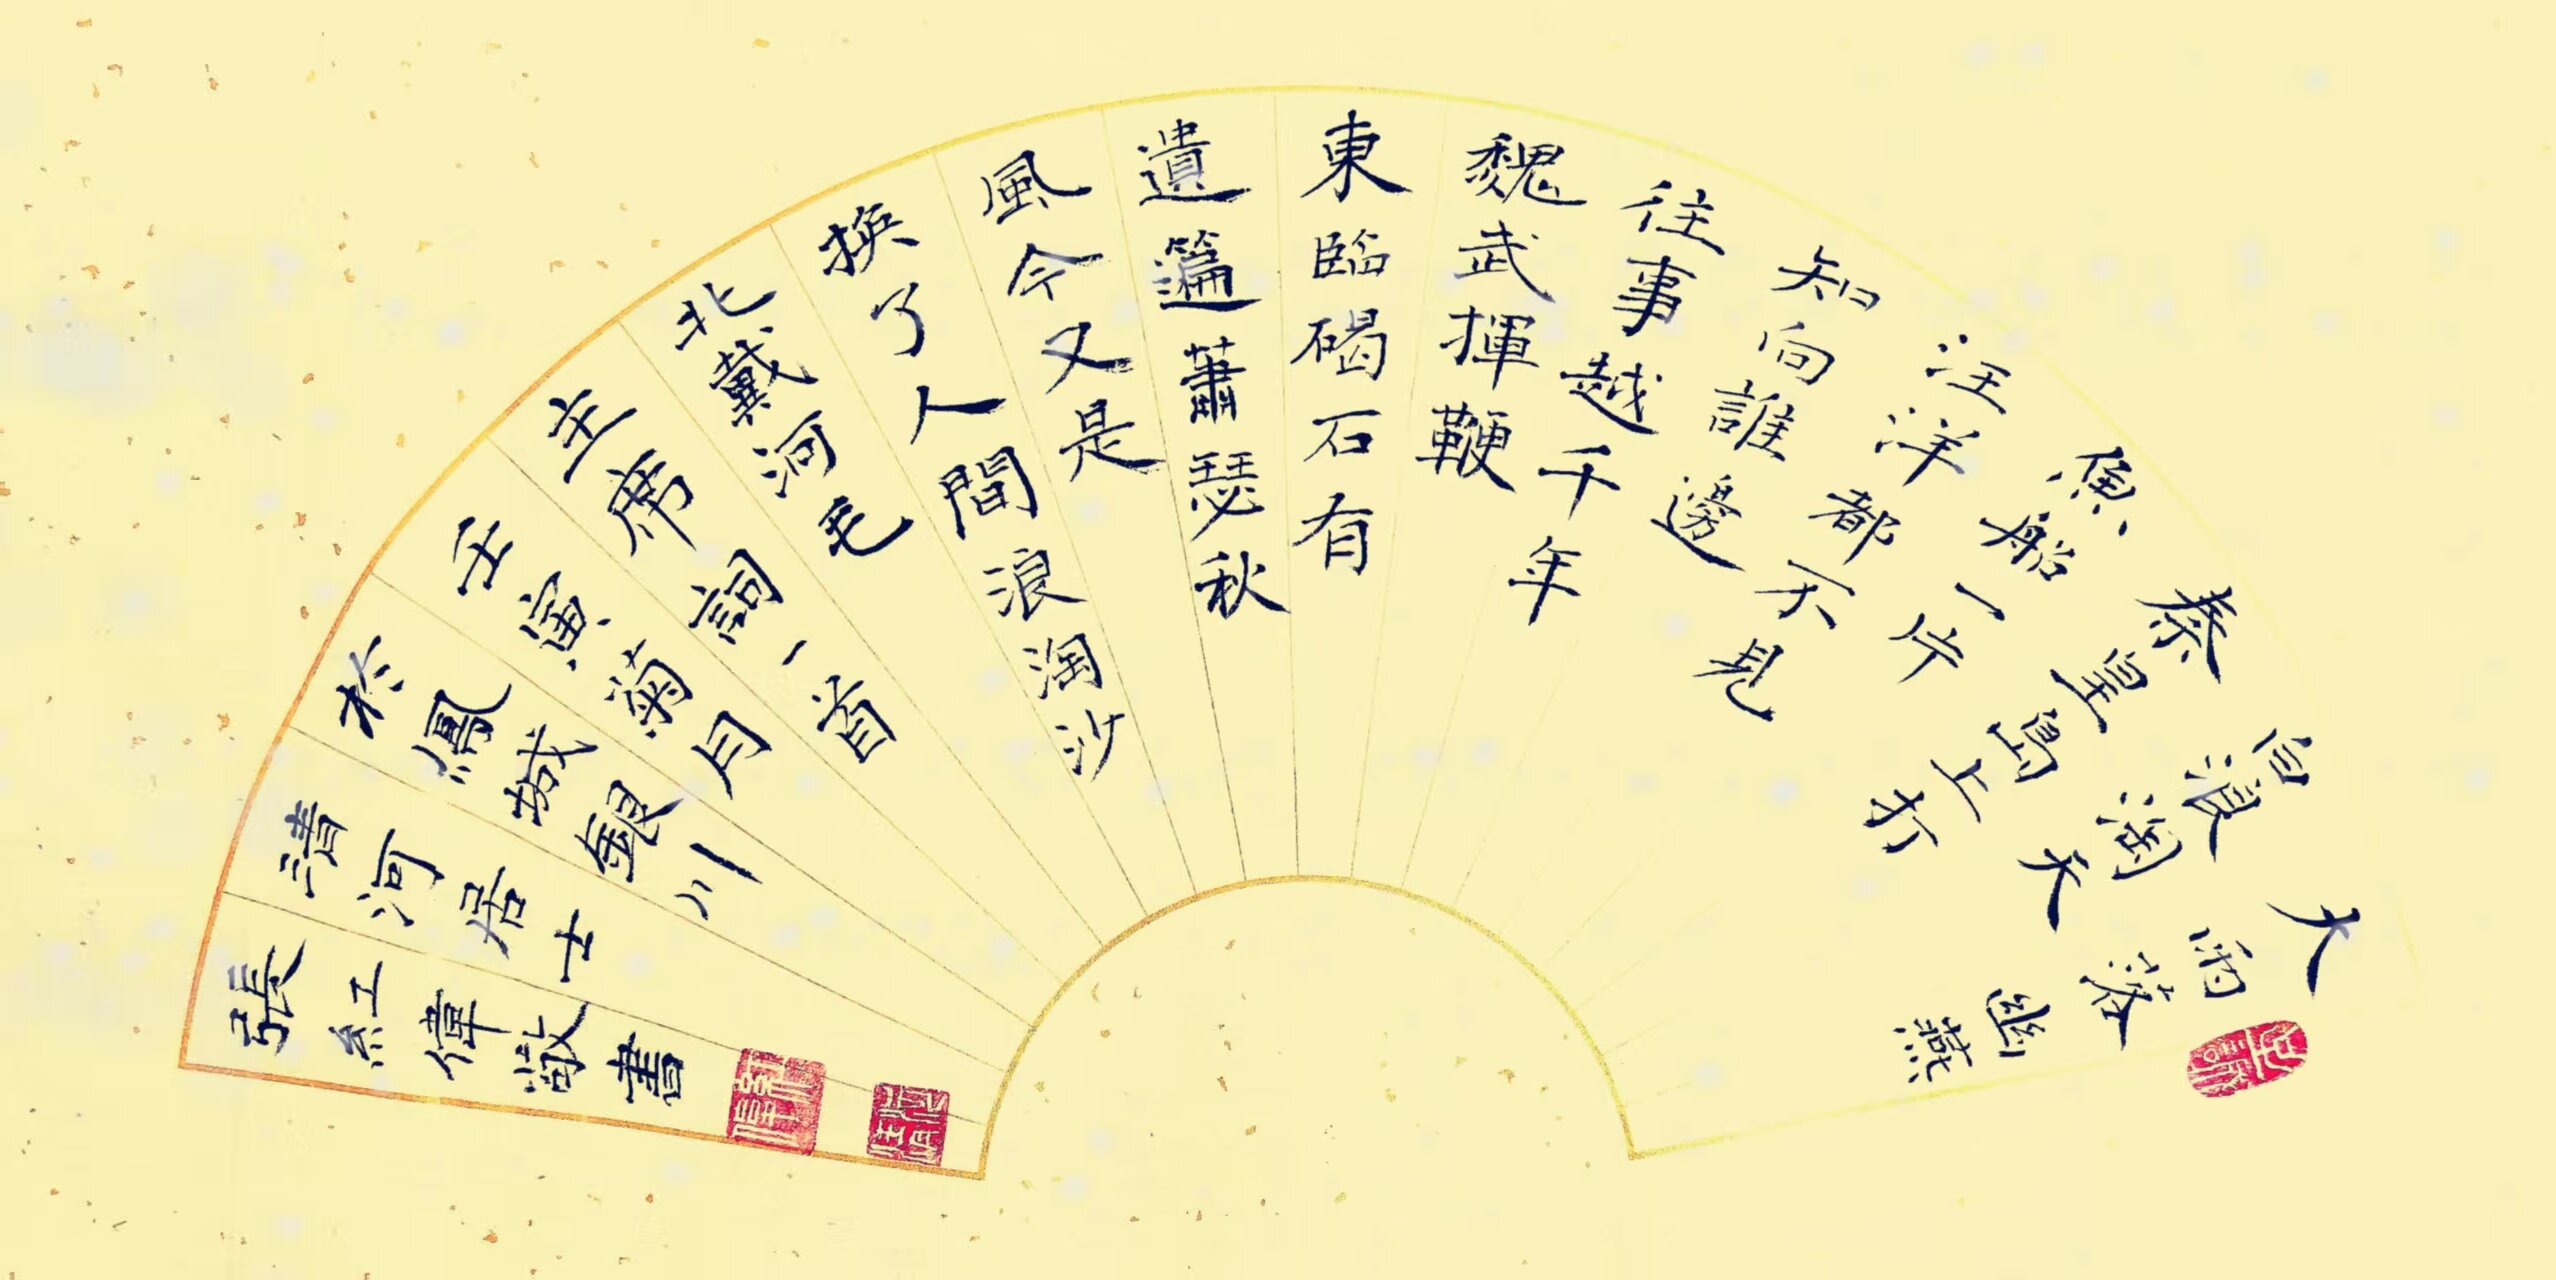 大雨落幽燕
白浪滔天
秦皇島上打
魚船一片
汪洋都不見
知向誰邊
往事越千年
魏武揮鞭
東臨碣石有
遺篇蕭瑟秋
風今又是
換了人間浪淘沙
北戴河毛
主席詞一首
壬寅菊月
於鳳城銀川
清河居士
張紅偉敬書